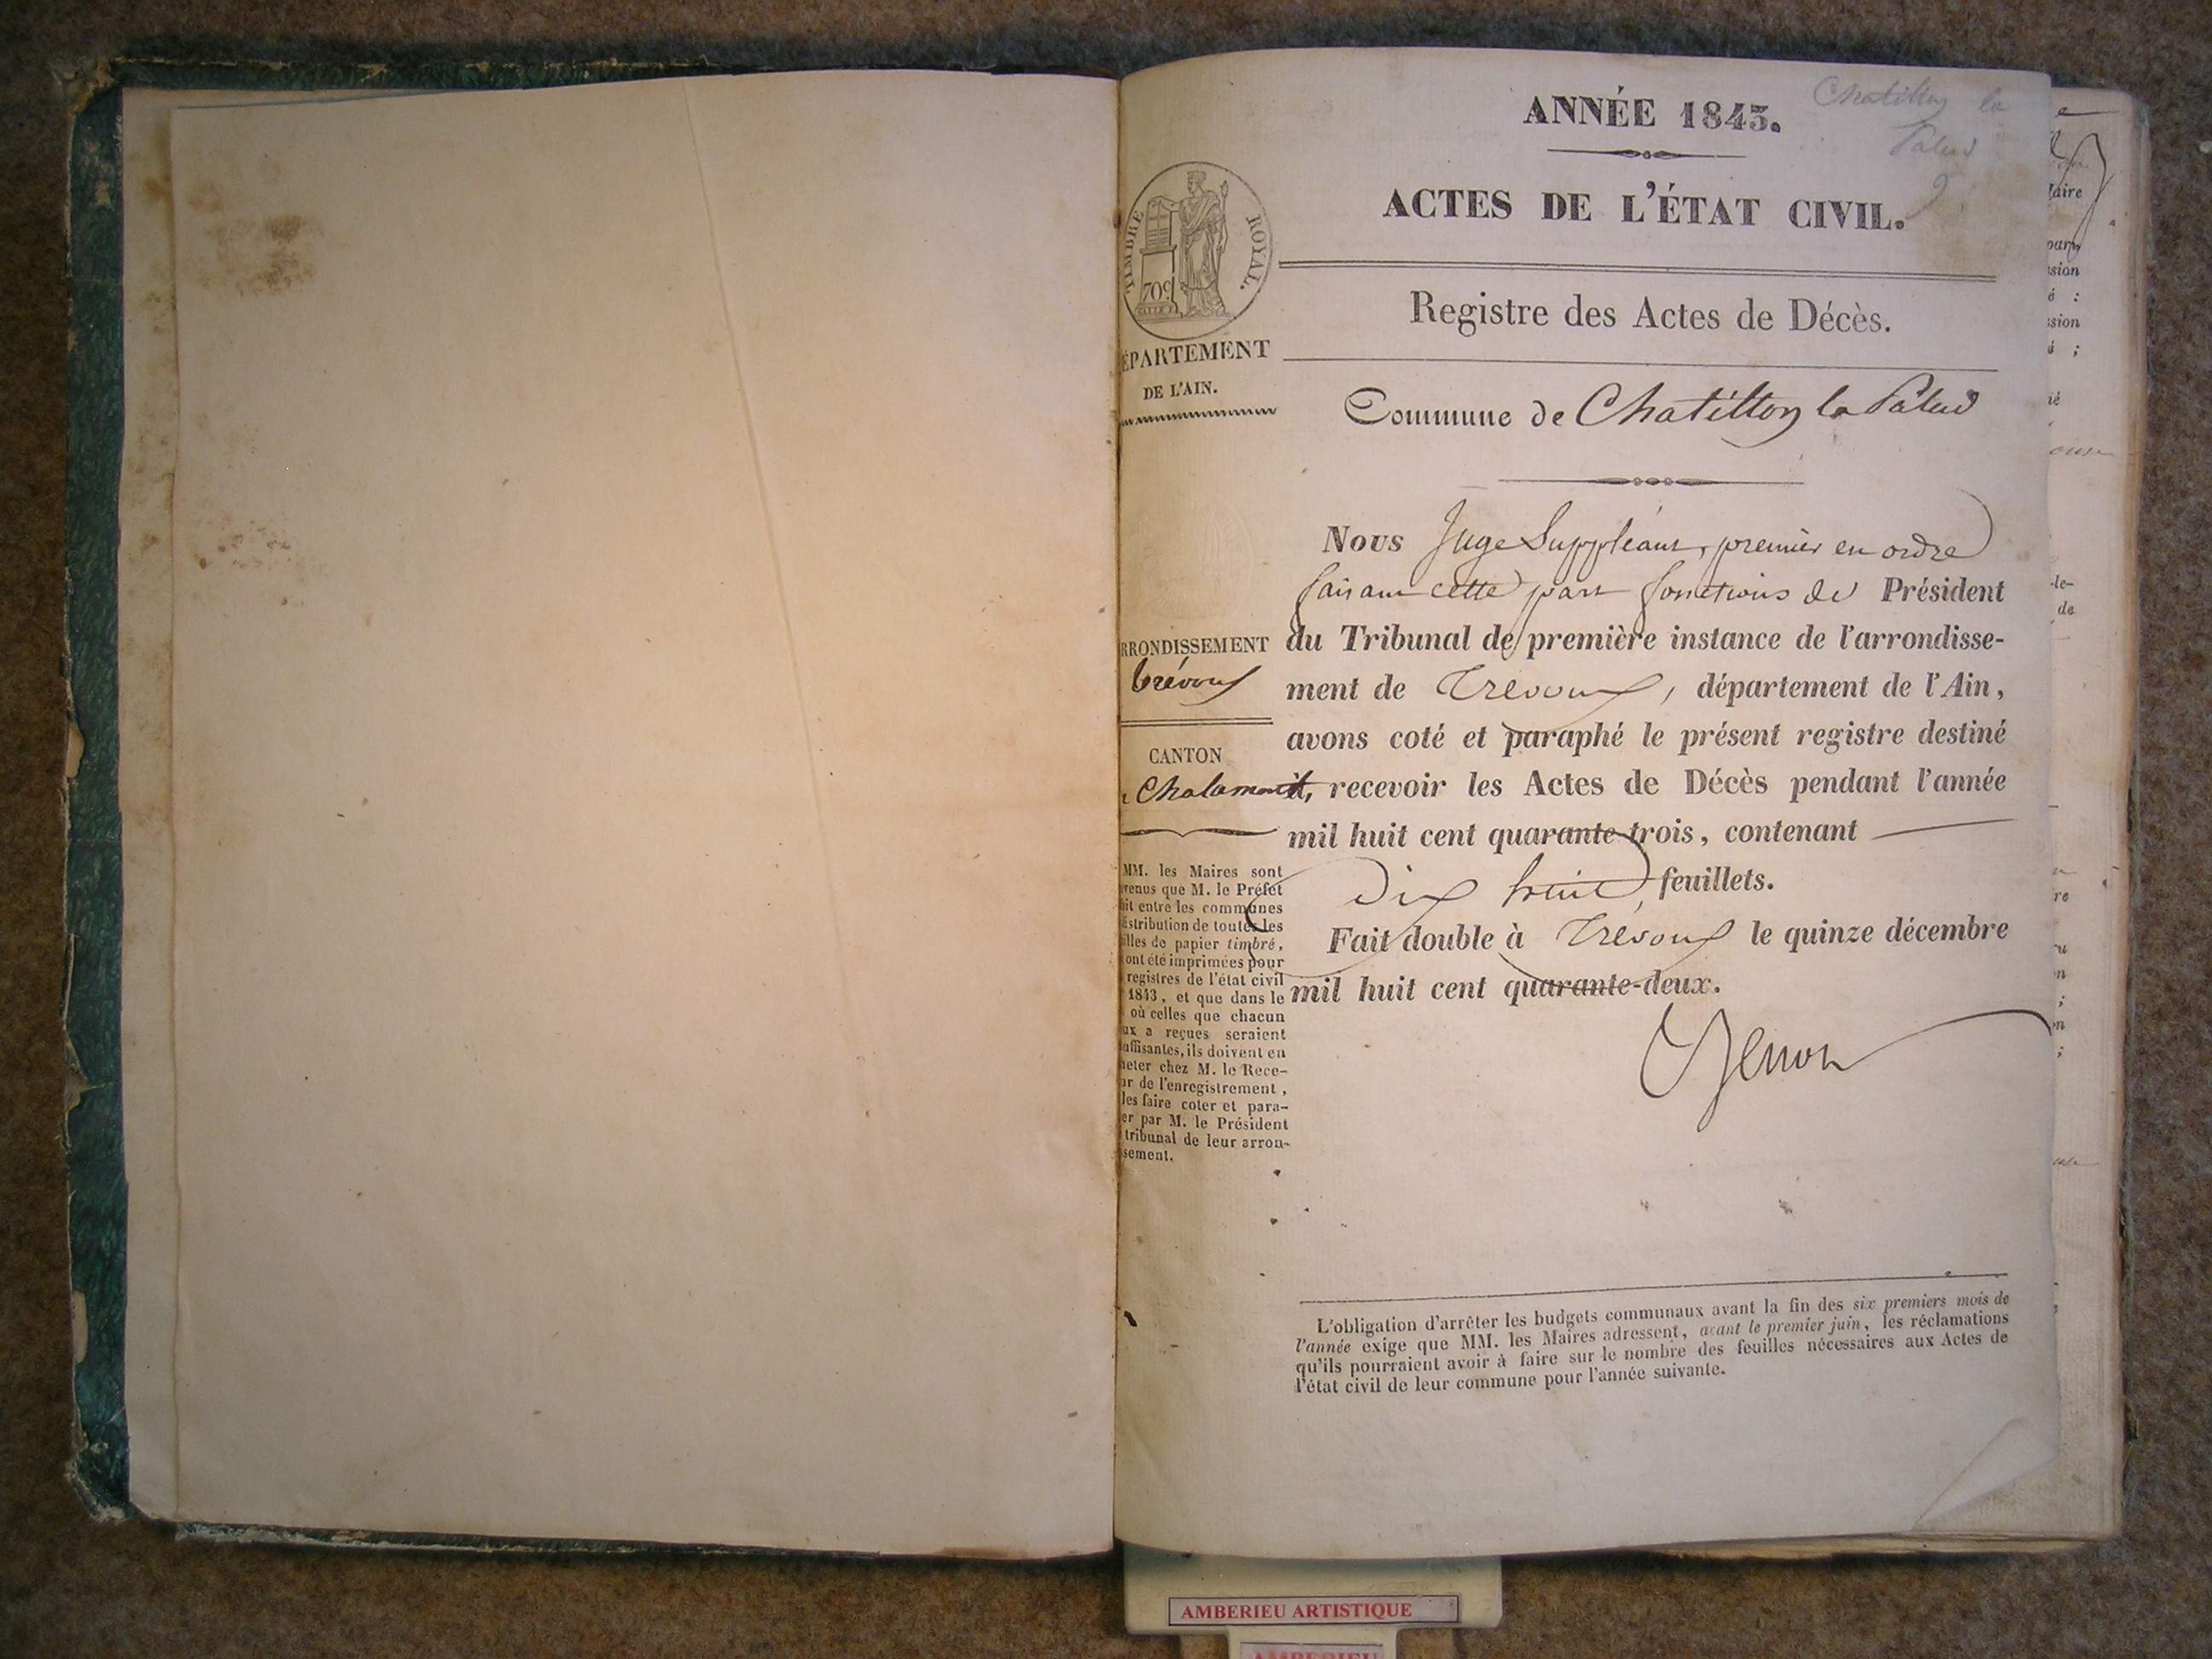 ANNÉE 1843.
Chatillon la
Palud
9
ACTES DE L'ÉTAT CIVIL.
TIMBRE ROYAL.
70c
Registre des Actes de Décès.
ÉPARTEMENT
DE L'AIN.
Commune de Chatillon la Palud
Nous Juge Suppléant, premier en ordre
faisant cette part fonctions de Président
du Tribunal de première instance de l'arrondisse-
ment de Trévoux, département de l'Ain,
avons coté et paraphé le présent registre destiné
à recevoir les Actes de Décès pendant l'année
mil huit cent quarante-trois, contenant
Dix huit feuillets.
Fait double à Trévoux le quinze décembre
mil huit cent quarante-deux.
RRONDISSEMENT
Trévoux
CANTON
Chalamont
MM. les Maires sont
venus que M. le Préfet
ait entre les communes
istribution de toutes les
illes de papier timbré,
ont été imprimées pour
registres de l'état civil
1843, et que dans le
où celles que chacun
ux a reçues seraient
uffisantes, ils doivent en
heter chez M. le Rece-
ur de l'enregistrement,
les faire coter et para-
er par M. le Président
tribunal de leur arron-
sement.
L'obligation d'arrêter les budgets communaux avant la fin des six premiers mois de
l'année exige que MM. les Maires adressent, avant le premier juin, les réclamations
qu'ils pourraient avoir à faire sur le nombre des feuilles nécessaires aux Actes de
l'état civil de leur commune pour l'année suivante.
AMBERIEU ARTISTIQUE
AMBERIEU